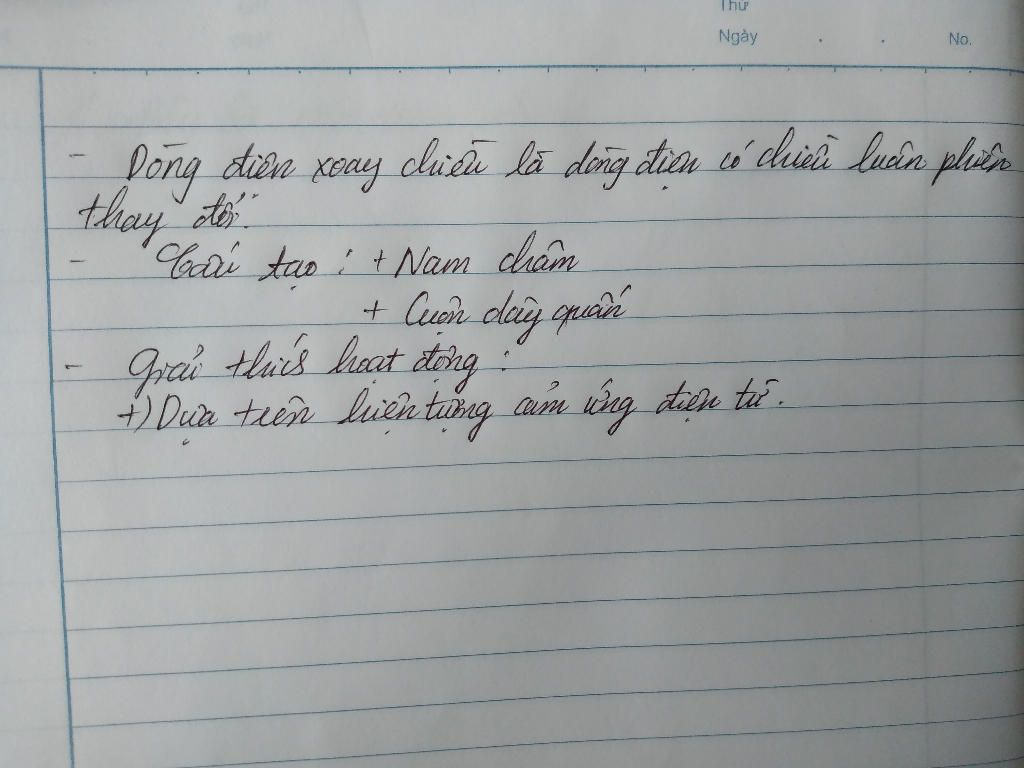 Thứ
Ngày . . No.
- Dòng điện xoay chiều là dòng điện có chiều luân phiên
thay đổi.
- Cấu tạo : + Nam châm
+ Cuộn dây quấn
- Giải thích hoạt động :
+) Dựa trên hiện tượng cảm ứng điện từ.